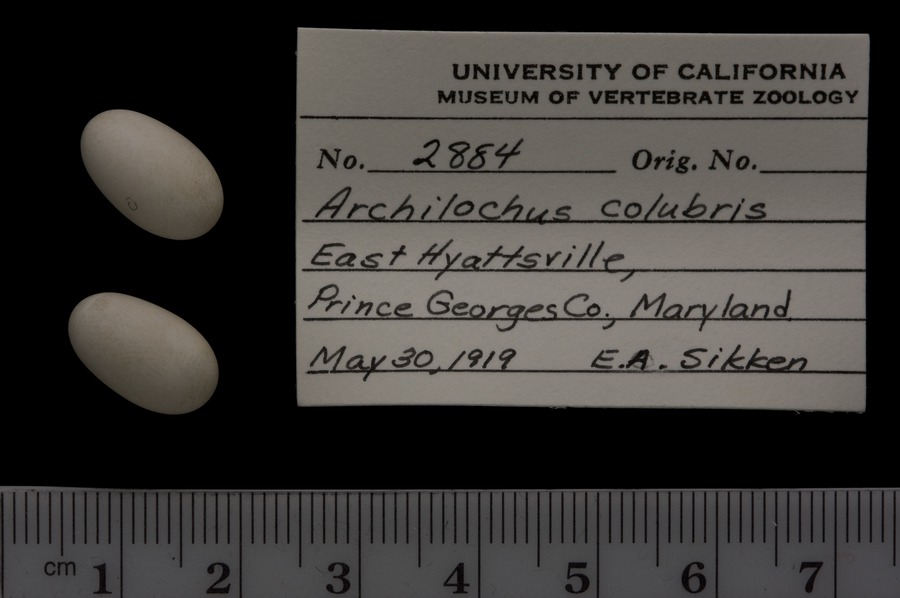 UNIVERSITY OF CALIFORNIA
MUSEUM OF VERTEBRATE ZOOLOGY
No. 2884 Orig. No.
Archilochus colubris
East Hyattsville,
Prince Georges Co., Maryland
May 30, 1919 E.A. Sikken
cm 1 2 3 4 5 6 7